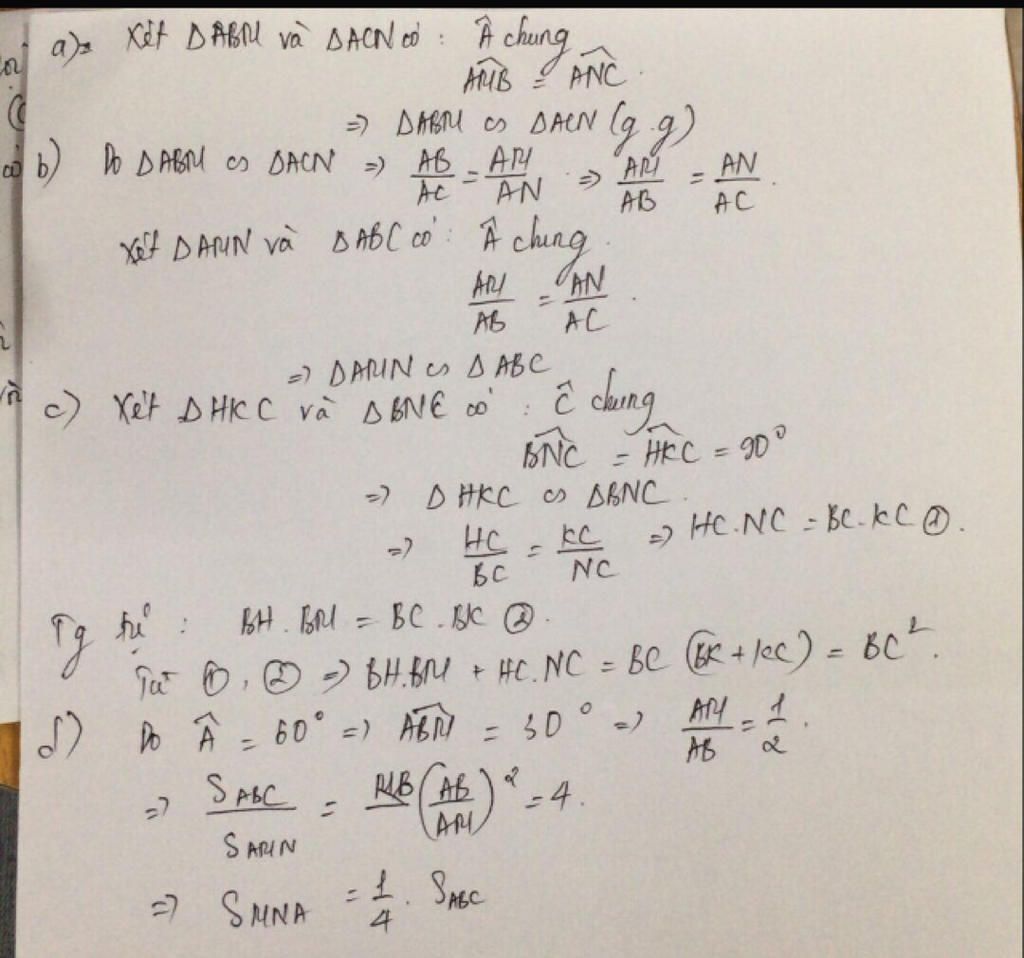 a) Xét ΔABM và ΔACN có : Â chung
∠AMB = ∠ANC.
=> ΔABM ∽ ΔACN (g.g)
b) Do ΔABM ∽ ΔACN => AB/AC = AM/AN => AM/AB = AN/AC.
Xét ΔAMN và ΔABC có : Â chung.
AM/AB = AN/AC.
=> ΔAMN ∽ ΔABC
c) Xét ΔHKC và ΔBNC có : Ĉ chung
∠BNC = ∠HKC = 90°
=> ΔHKC ∽ ΔBNC.
=> HC/BC = KC/NC => HC.NC = BC.KC ①.
Tg tự : BH.BM = BC.BK ②.
Từ ①, ② => BH.BM + HC.NC = BC (BK + KC) = BC².
d) Do Â = 60° => ∠ABM = 30° => AM/AB = 1/2.
=> S ABC / S AMN = (AB/AM)² = 4.
=> S MNA = 1/4 . S ABC